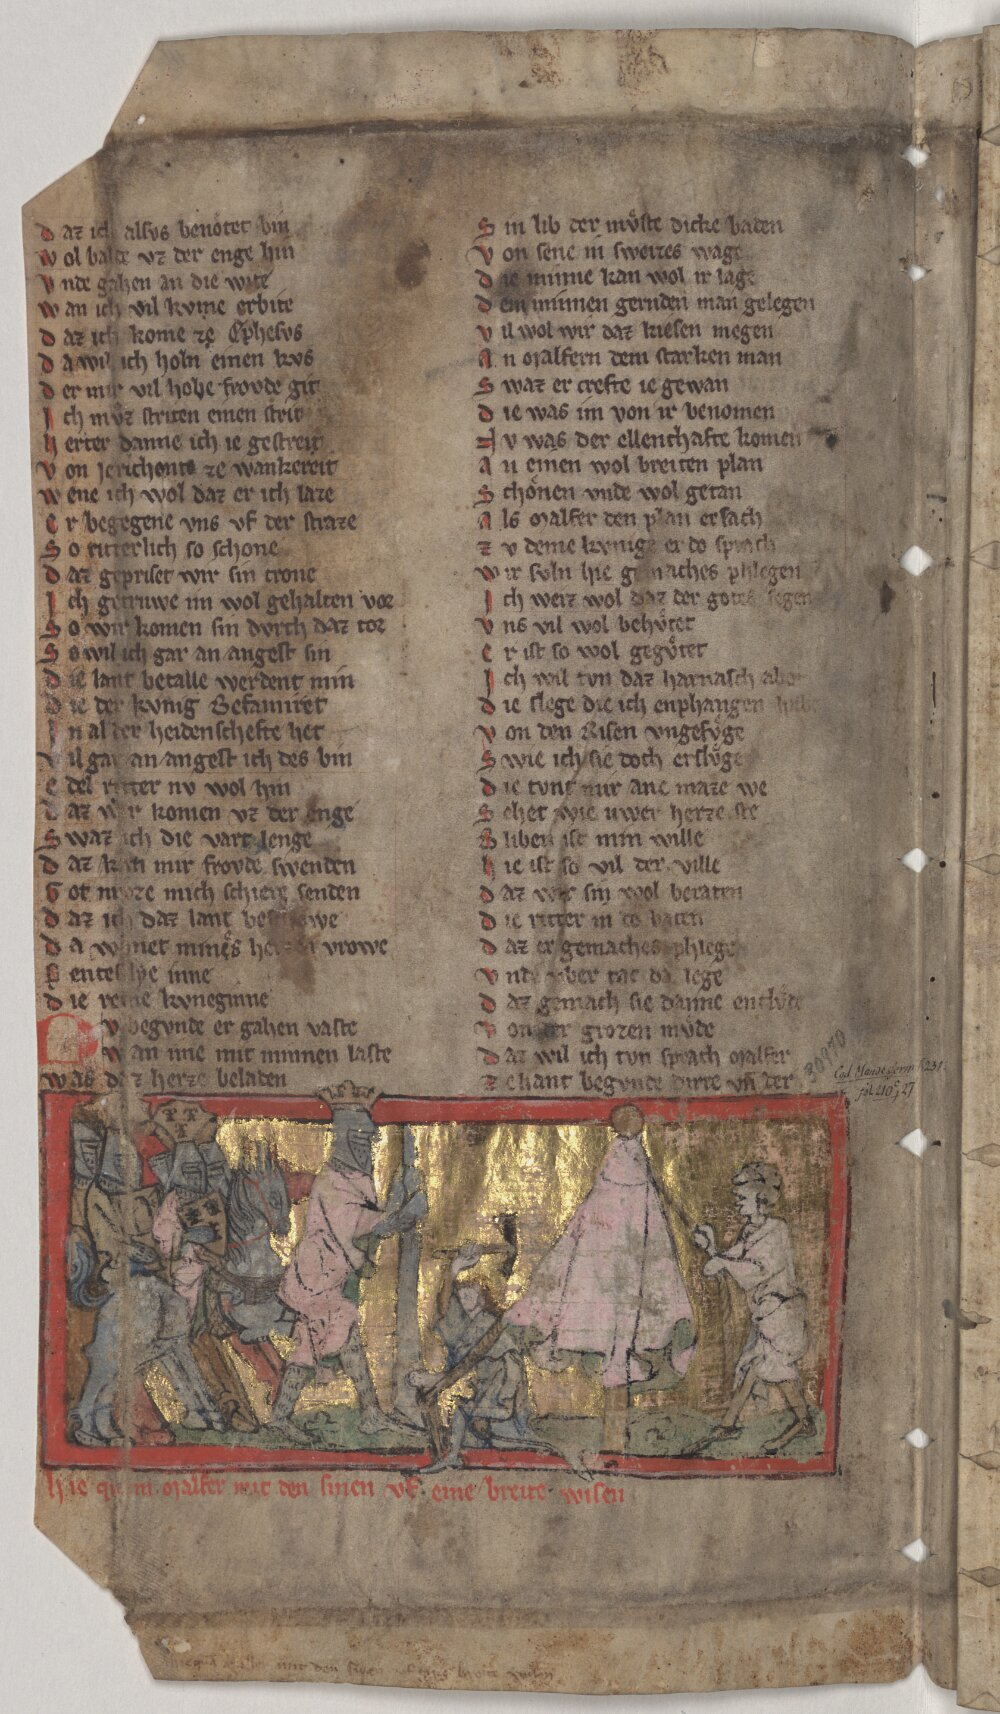 D az ich alsvs benötet bin
W ol balde vz der enge hin
V nde gahen an die wite
W an ich vil kvme erbite
D az ich kome ze Ephesvs
D a wil ich holn einen kvs
D er mir vil hohe frovde git
I ch mvz striten einen strit
H erter danne ich ie gestreit
V on Jerichonts ze wankereit
W ene ich wol daz er ich laze
E r begegene vns vf der straze
S o ritterlich so schone
D az gepriset wir sin crone
I ch getruwe im wol gehalten vor
S o wir komen sin dvrch daz tor
S o wil ich gar an angest sin
D ie lant betalle werdent min
D ie der kvnig Befamiret
I n al der heidenschefte het
V il gar an angest ich des bin
E del ritter nv wol hin
D az wir komen vz der enge
S waz ich die vart lenge
D az kan mir frovde swenden
G ot mvze mich schiere senden
D az ich daz lant beschowe
D a wonet mines herzen vrowe
P entesilye inne
D ie reine kvneginne
N v begvnde er gahen vaste
W an ime mit minnen laste
Was daz herze beladen
S in lib der mvͦste dicke baden
V on sene in sweizes wage
D ie minne kan wol ir lage
D em minnen gernden man gelegen
V il wol wir daz kiesen megen
A n Malfern dem starken man
S waz er crefte ie gewan
D ie was im von ir benomen
N v was der ellenthafte komen
A n einen wol breiten plan
S chönen vnde wol getan
A ls Malfer den plan ersach
Z v deme kvnige er do sprach
W ir svln hie gemaches phlegen
I ch weiz wol daz der gotes segen
V ns vil wol behvͦtet
E r ist so wol gegvͦtet
I ch wil tvn daz harnasch abe
D ie slege die ich enphangen habe
V on den Risen vngefvͦge
S wie ich sie doch erslvͦge
D ie tvnt mir ane maze we
S ehet wie uwer herze ste
S liben ist min wille
H ie ist so vil der ville
D az wir sin wol beraten
D ie ritter in do baten
D az er gemaches phlege
V nde vber tac da lege
D az gemach sie danne entlvͦde
V on der grozen mvͦde
D az wil ich tvn sprach Malfer
Z ehant begvnde dirre vnd der
30970
Cod. Manuscr. germ. 231.
fol. 210, 27
Hie quam Malfer mit den sinen vf eine breite wisen
mit den sinen breite wisen